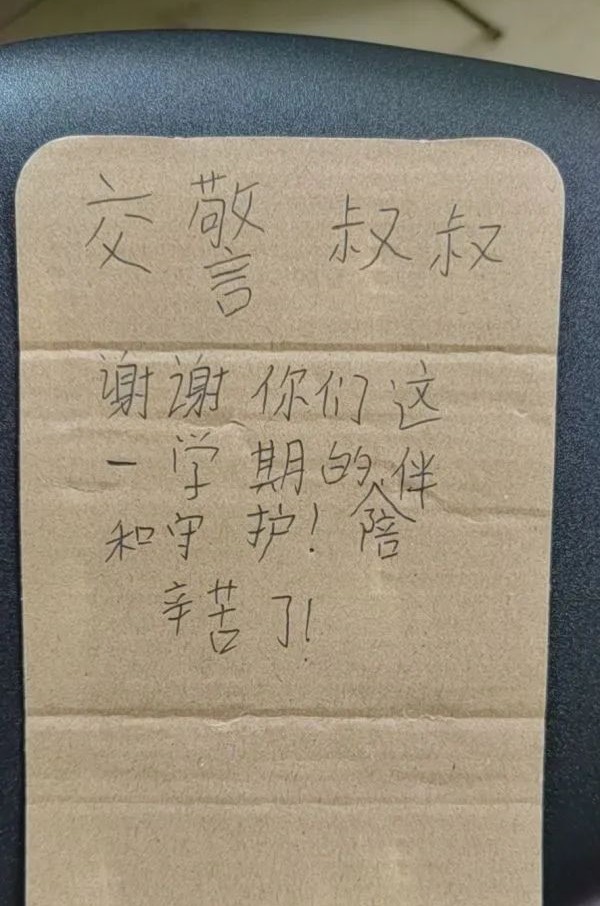 交警叔叔
谢谢你们这
一学期的陪伴
和守护!
辛苦了!